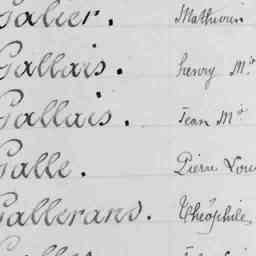 Galier. Mathurin
Gallais. henry M.ie
Gallais. Jean M.ie
Galle. Pierre Louis
Gallerand. Théophile